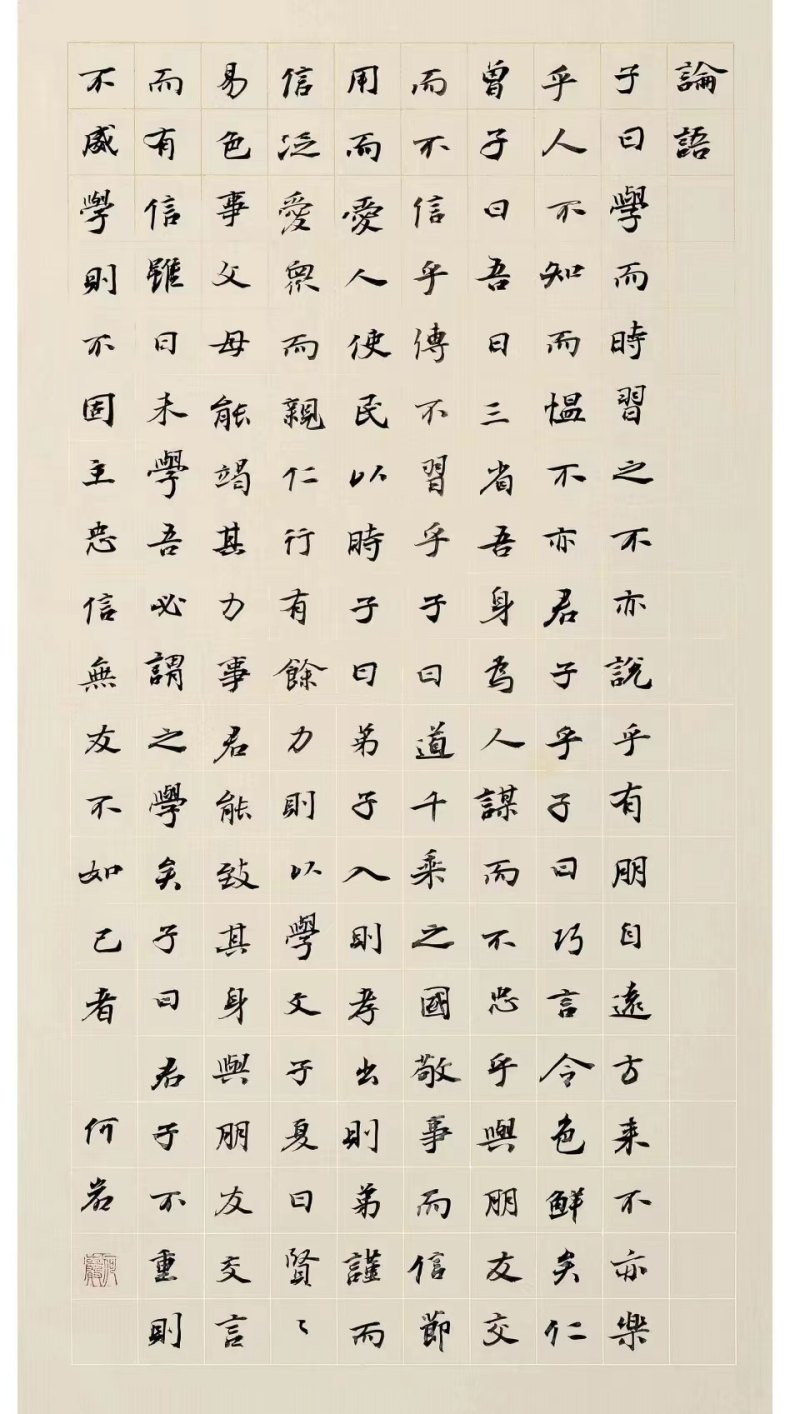 論語
子曰學而時習之不亦說乎有朋自遠方來不亦樂
乎人不知而愠不亦君子乎子曰巧言令色鮮矣仁
曾子曰吾日三省吾身為人謀而不忠乎與朋友交
而不信乎傳不習乎子曰道千乘之國敬事而信節
用而愛人使民以時子曰弟子入則孝出則弟謹而
信泛愛衆而親仁行有餘力則以學文子夏曰賢〻
易色事父母能竭其力事君能致其身與朋友交言
而有信雖曰未學吾必謂之學矣子曰君子不重則
不威學則不固主忠信無友不如己者 何